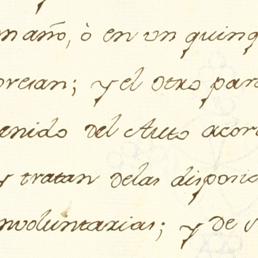 m año, ò en un quinq
presan; y el otro par
enido del Auto acor
y tratan delas dispoic
nvoluntarias; y de s